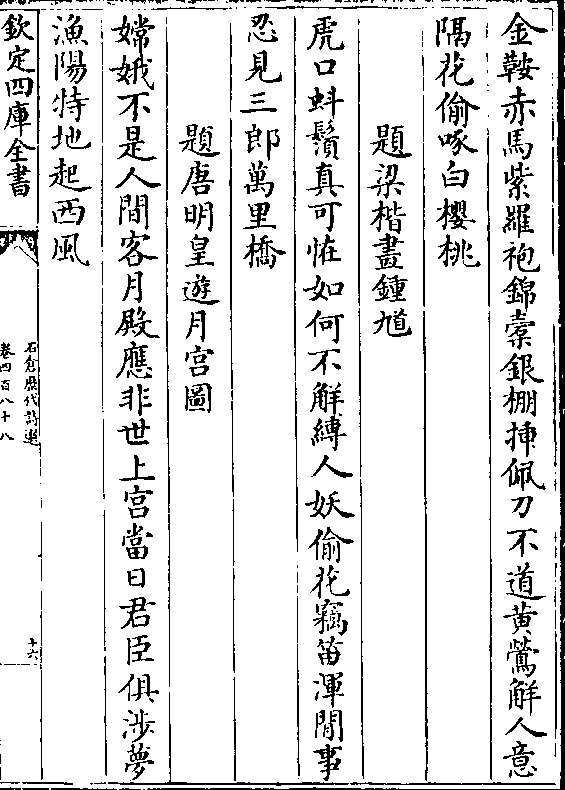 金鞍赤馬紫羅袍錦橐銀棚挿佩刀不道黄鶯觧人意
隔花偷啄白櫻桃
題梁楷畫鍾馗
虎口虯鬚真可恠如何不觧縛人妖偷花竊笛渾閒事
忍見三郎萬里橋
題唐明皇遊月宫圖
嫦娥不是人間客月殿應非世上宫當日君臣俱涉夢
漁陽特地起西風
欽定四庫全書
石倉歷代詩選
卷四百八十八
十六